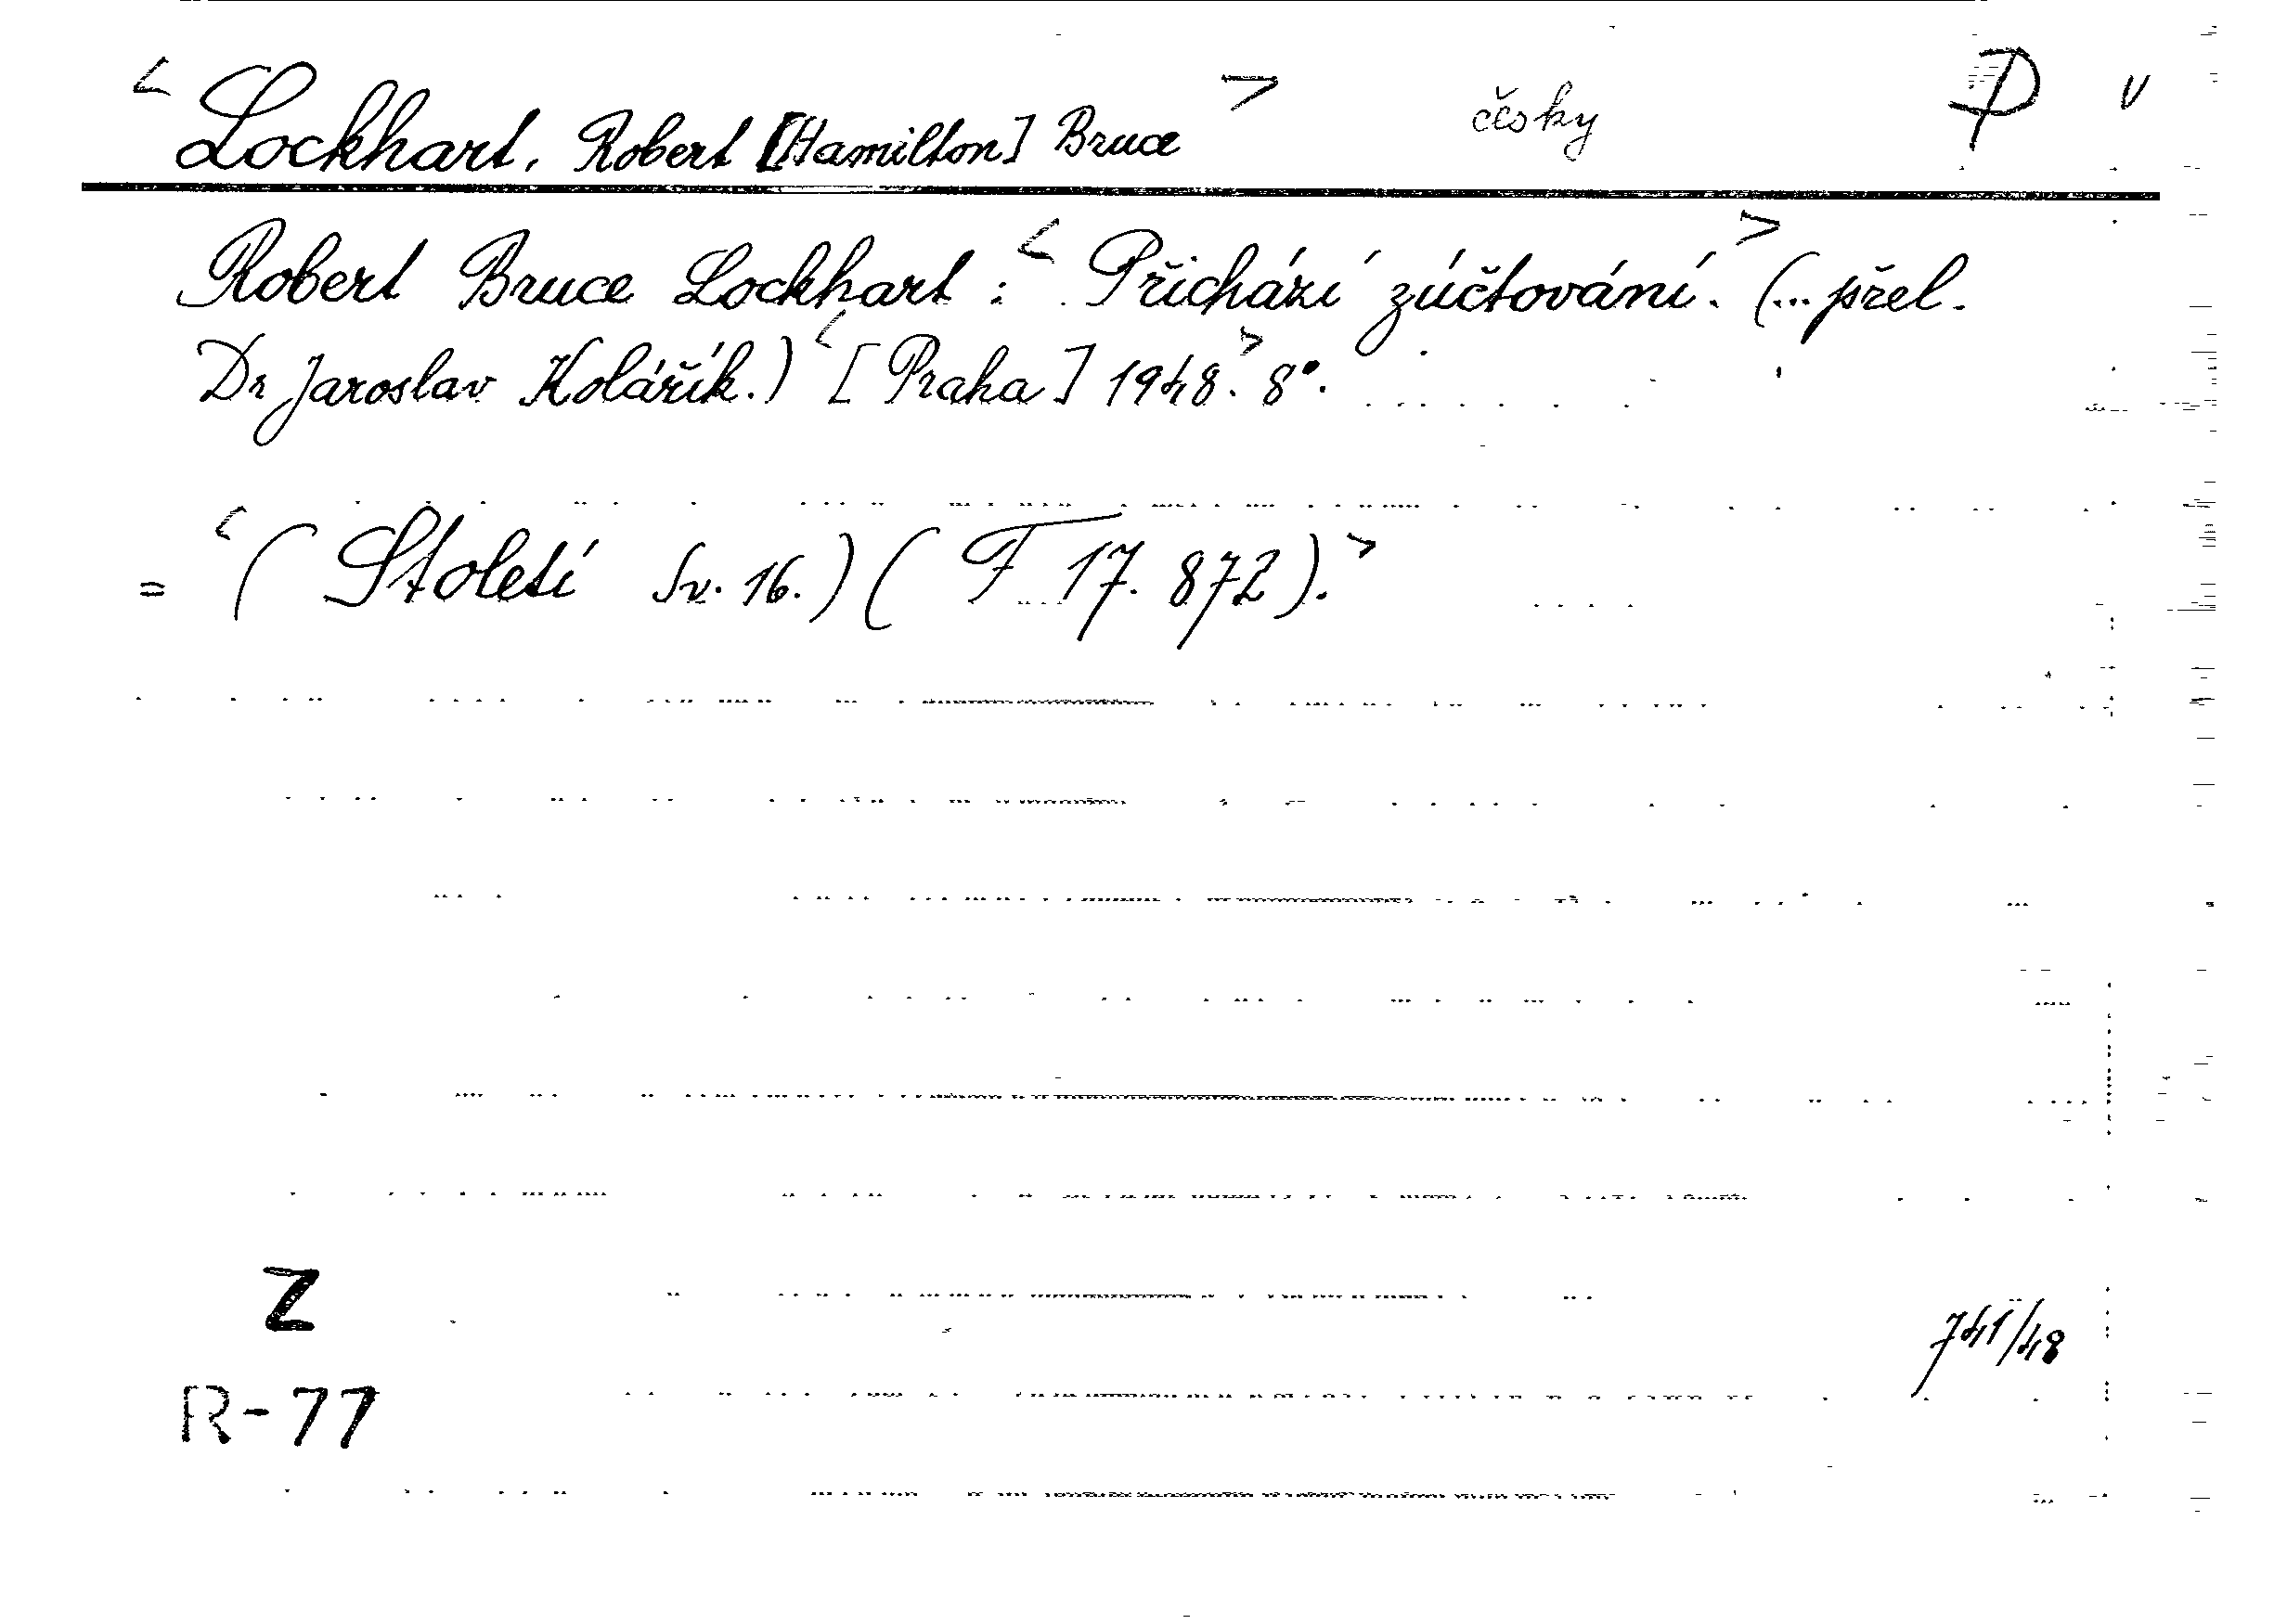 < Lockhart, Robert [Hamilton] Bruce > česky P v
Robert Bruce Lockhart : < Přichází zúčtování. > (... přel.
Dr Jaroslav Kolářík.) < [Praha] 1948. > 8°.
= < ( Století Sv. 16.) ( F 17. 872). >
Z
741/48
R-77